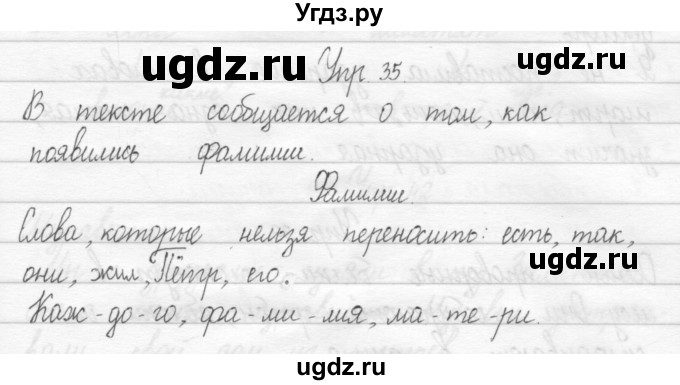 Угдз.ру
ugdz.ru Упр. 35 ugdz.ru
В тексте сообщается о том, как
появились фамилии.
Фамилии.
Слова, которые нельзя переносить: есть, так,
они, жил, Пётр, его.
Каж-до-го, фа-ми-лия, ма-те-ри.
ugdz.ru ugdz.ru
ugdz.ru